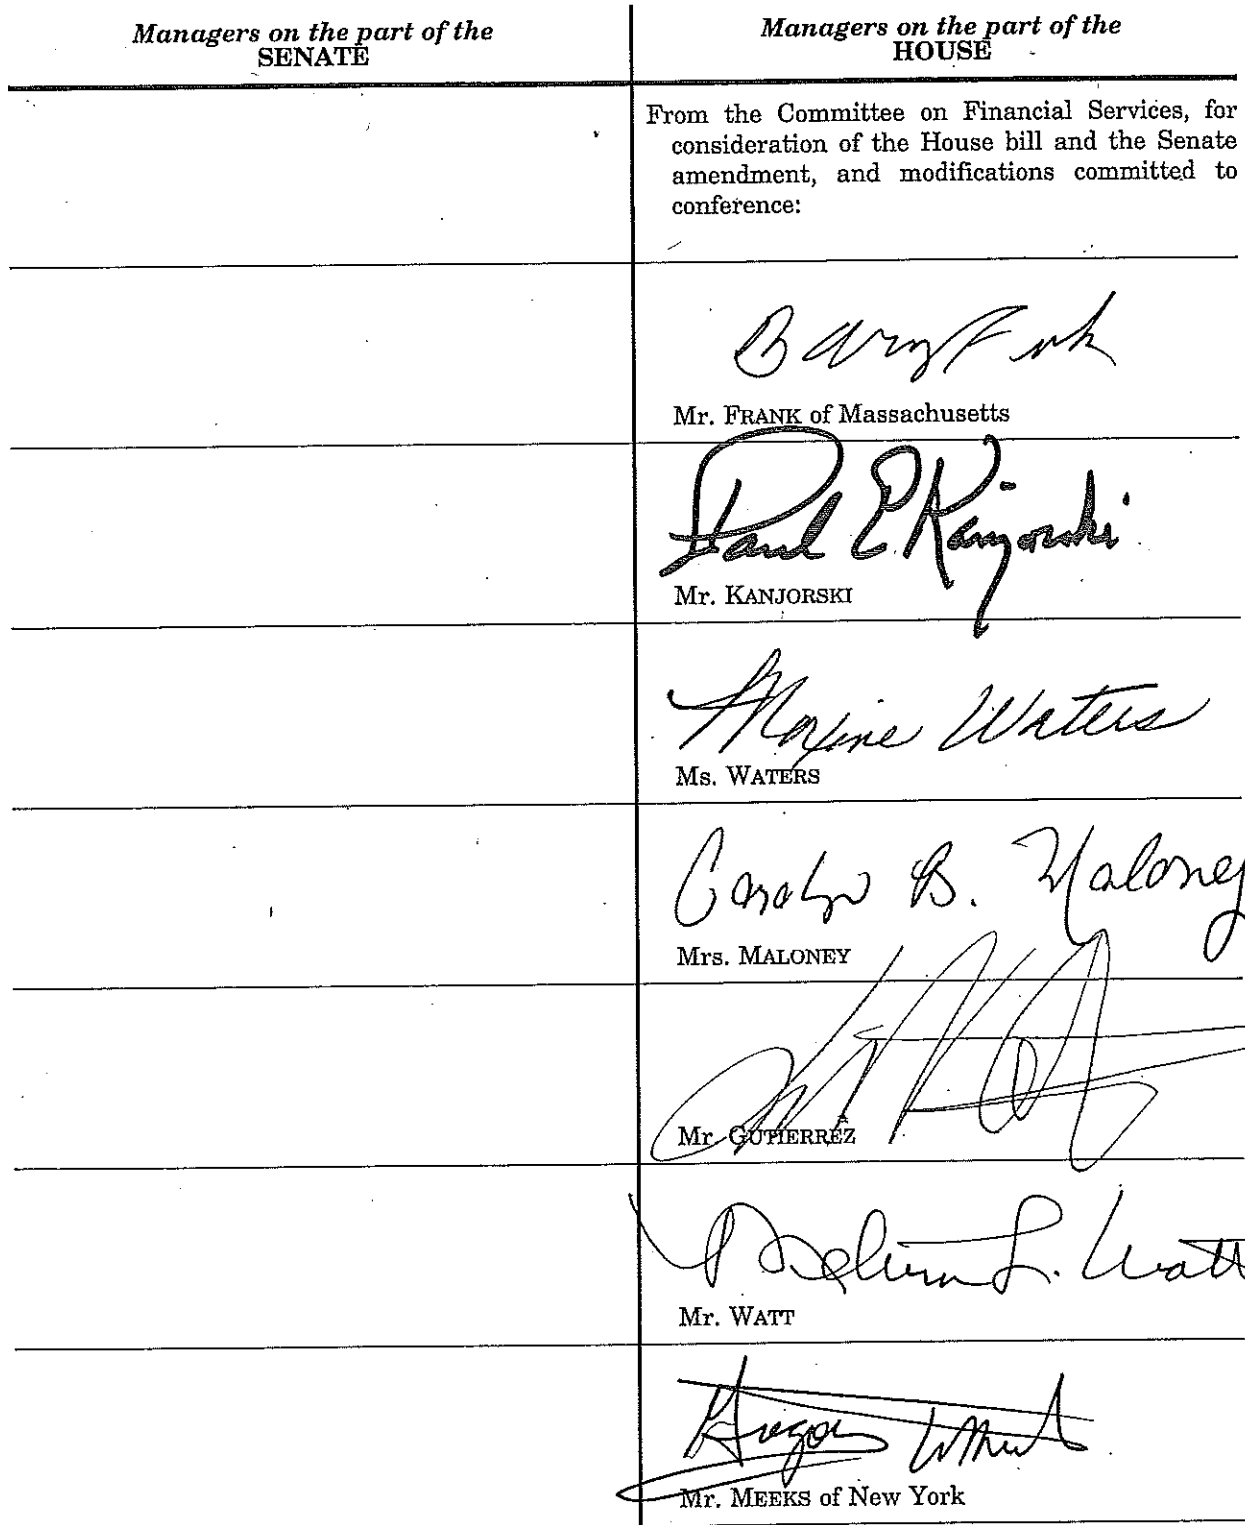 Managers on the part of the
SENATE
Managers on the part of the
HOUSE
From the Committee on Financial Services, for
consideration of the House bill and the Senate
amendment, and modifications committed to
conference:
Barney Frank
Mr. FRANK of Massachusetts
Paul E. Kanjorski
Mr. KANJORSKI
Maxine Waters
Ms. WATERS
Carolyn B. Maloney
Mrs. MALONEY
Mr. GUTIERREZ
Melvin L. Watt
Mr. WATT
Mr. MEEKS of New York